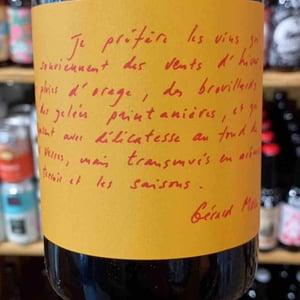 Je préfère les vins
souviennent des vents d'
pluies d'orage, des brouillards
des gelées printanières, et
avec délicatesse au fond de
verres, mais transmués en
terroir et les saisons.
Gérard